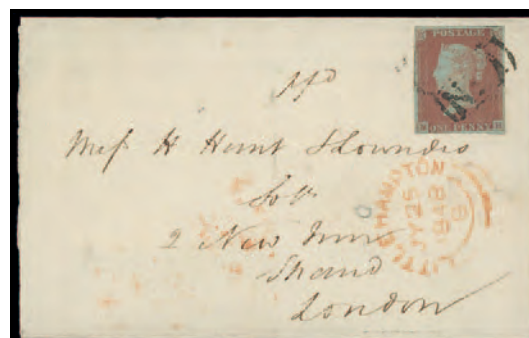 POSTAGE
ONE PENNY
pd
Messrs H Hunt & Lowndes
Solrs
2 New Inn
Strand
London
LITTLEHAMPTON
JY 25
1848